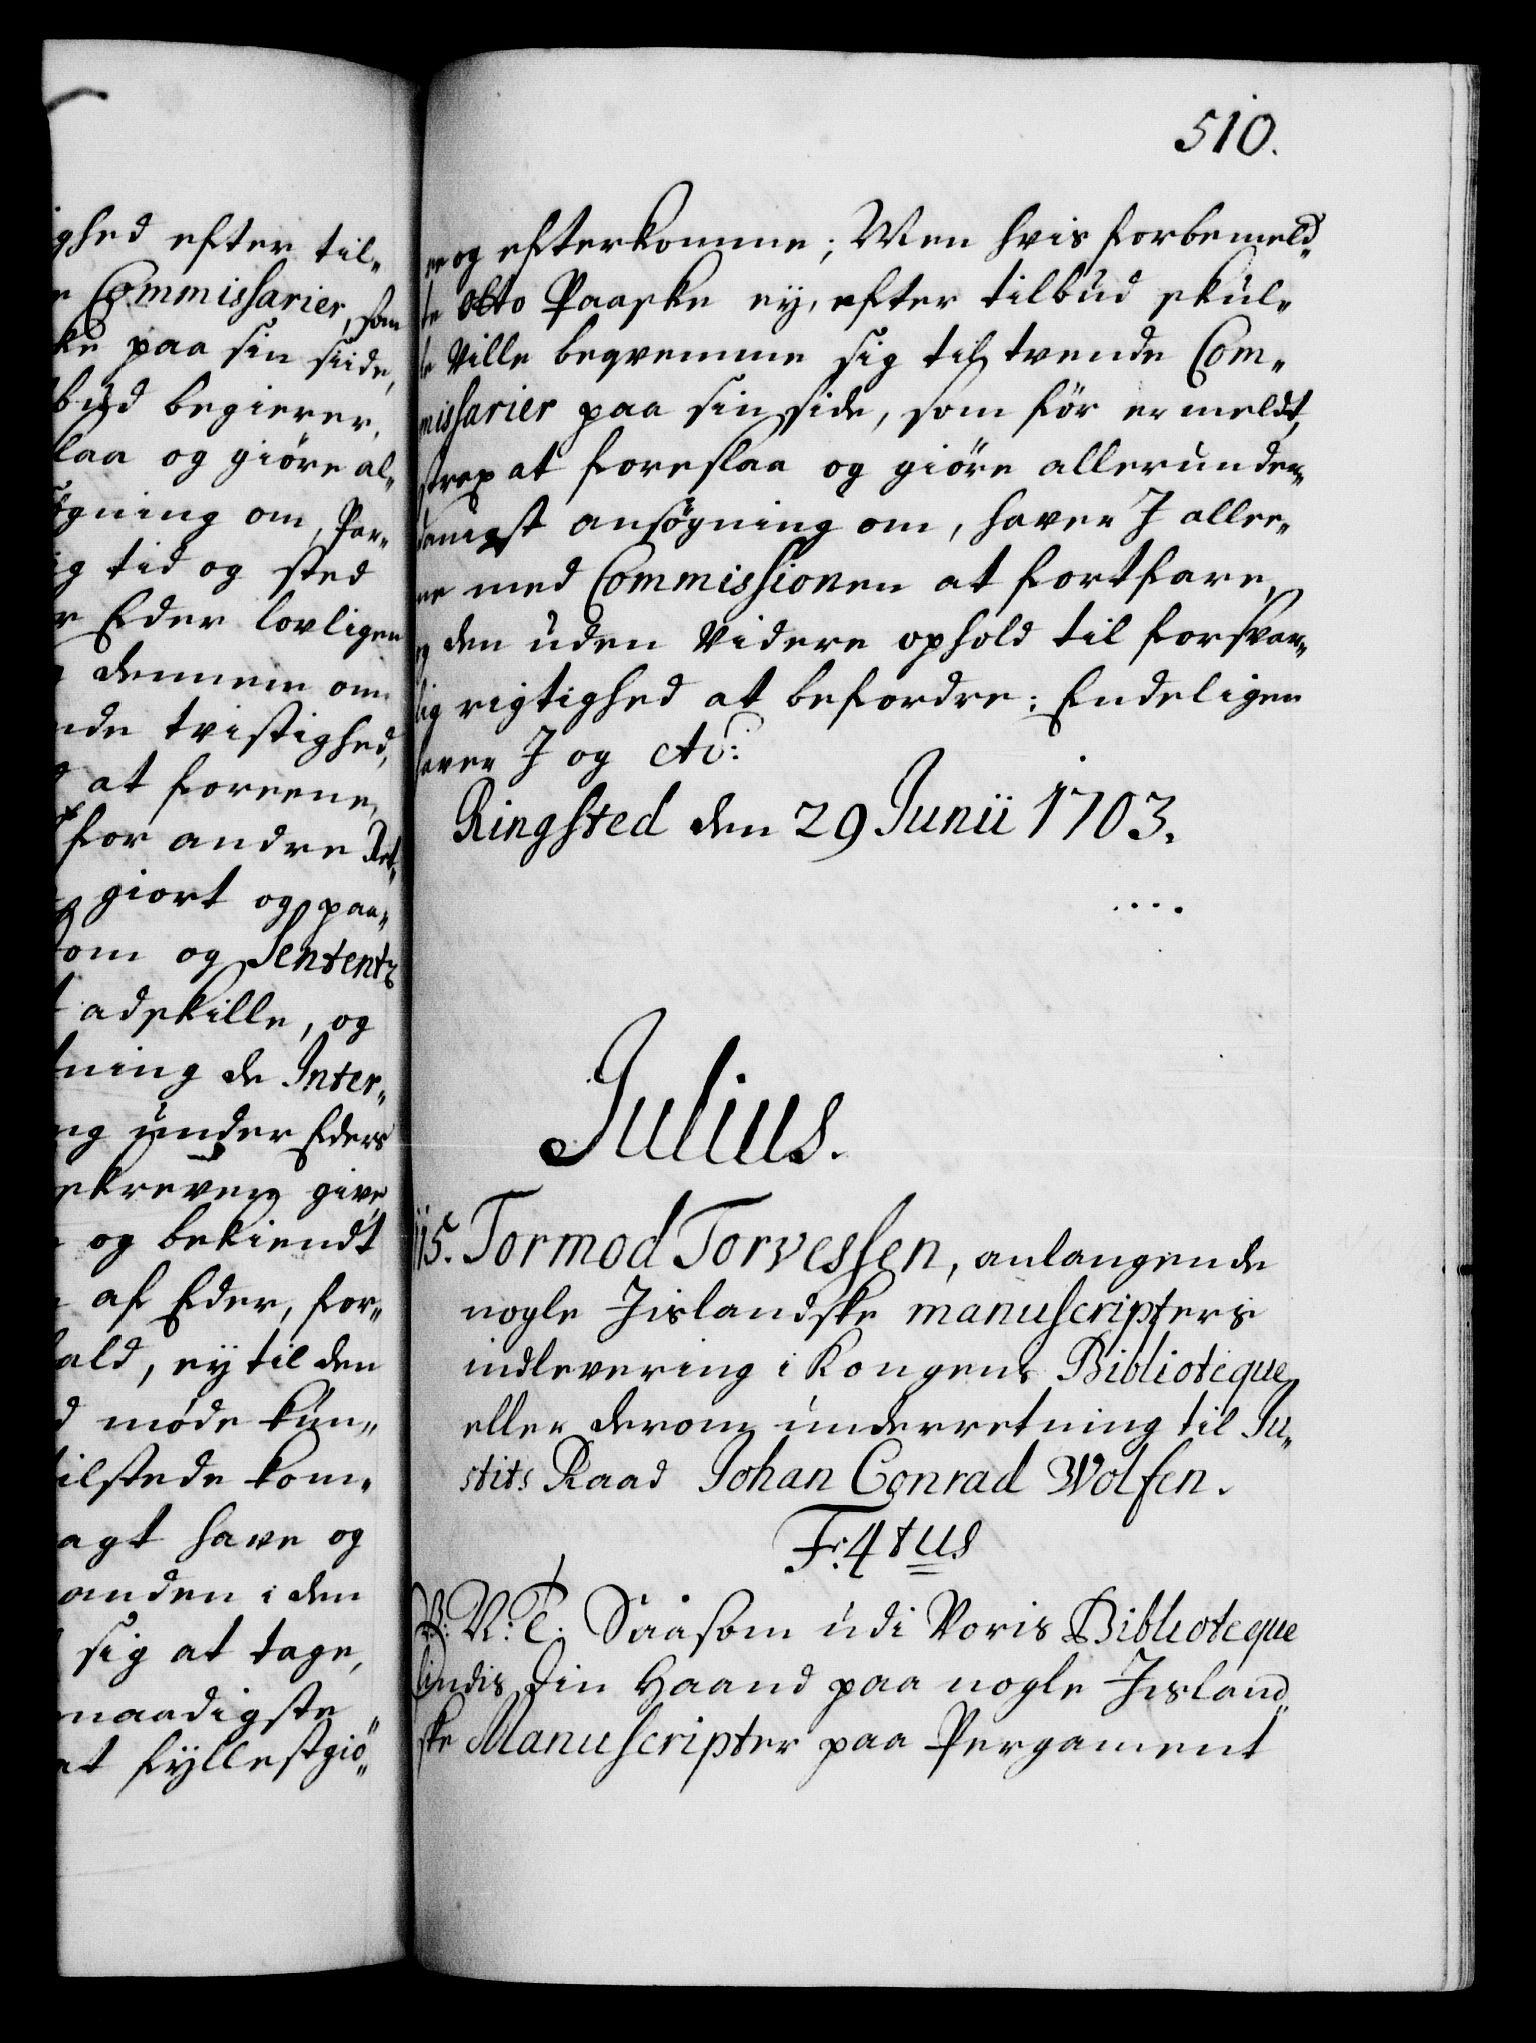 510.
ghed efter til„
e Commissarier, som
ke paa sin siide,
bud begierer,
laa og giöre al„
ögning om, Par„
ig tid og sted
r Eder lovligen
dennem om
nde tvistighed,
at foreene,
for andre Ret„
giort og paa„
om og Sententz
adskille, og
ning de Inter„
ng under Eders
skreven give,
og bekiendt
af Eder, for„
ald, ey til den
d møde kun„
tilstede kom„
agt have og
anden i den
sig at tage,
naadigste
at fyllestgiö„
re og efterkomme; Men hvis forbemeld„
te Otto Paaske ey, efter tilbud skul„
le Ville beqvemme sig til tvende Com„
missarier paa sin side, som för er meldt,
strax at foreslaa og giöre allerunder„
danigst ansøgning om, haver J alle„
ne med Commissionen at fortfare,
og den uden Videre ophold til forsvar„
lig rigtighed at befordre; Endeligen
haver J og etc:
Ringsted den 29 Junii 1703.
....
Julius.
115. Tormod Torvessen, anlangende
nogle Jislandske manuscripters
indlevering i Kongens Biblioteque,
eller derom underretning til Ju„
stits Raad Johan Conrad Wolfen.
F: 4tus
V: N: T: Saasom udi Voris Biblioteque
findis Din Haand paa nogle Jisland„
ske Manuscripter paa Pergament